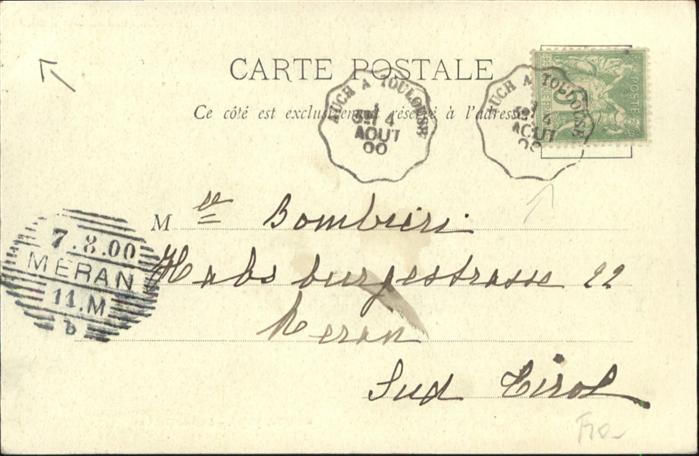 CARTE POSTALE
Ce côté est exclusivement réservé à l'adresse
AUCH A TOULOUSE
1
4
AOUT
00
AUCH A TOULOUSE
1
4
AOUT
00
Mlle Bombieri
Habsburgestrasse 22
Meran
Sud Tirol
7.8.00
MERAN
11.M
b